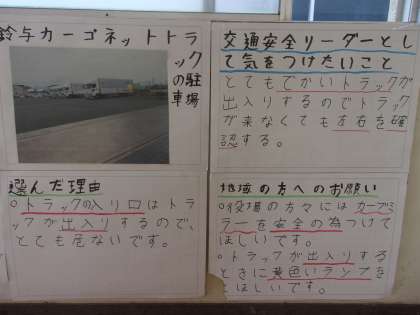 鈴与カーゴネットトラックの駐車場
交通安全リーダーとし
て気をつけたいこと
とてもでかいトラックが
出入りするのでトラック
が来なくても左右を確
認する。
選んだ理由
○トラックの入り口はトラ
ックが出入りするので、
とても危ないです。
地域の方へのお願い
○役場の方々にはカーブミ
ラーを安全の為つけて
ほしいです。
○トラックが出入りする
ときに黄色いランプを
とほしいです。